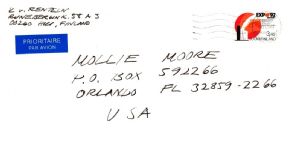 K. v. RENTELN
RUNEBERGINK. 58 A 3
00260 HKI, FINLAND
EXPO'92
PRIORITAIRE
PAR AVION
SUOMI FINLAND
MOLLIE MOORE
P.O. BOX 592266
ORLANDO FL 32859-2266
USA